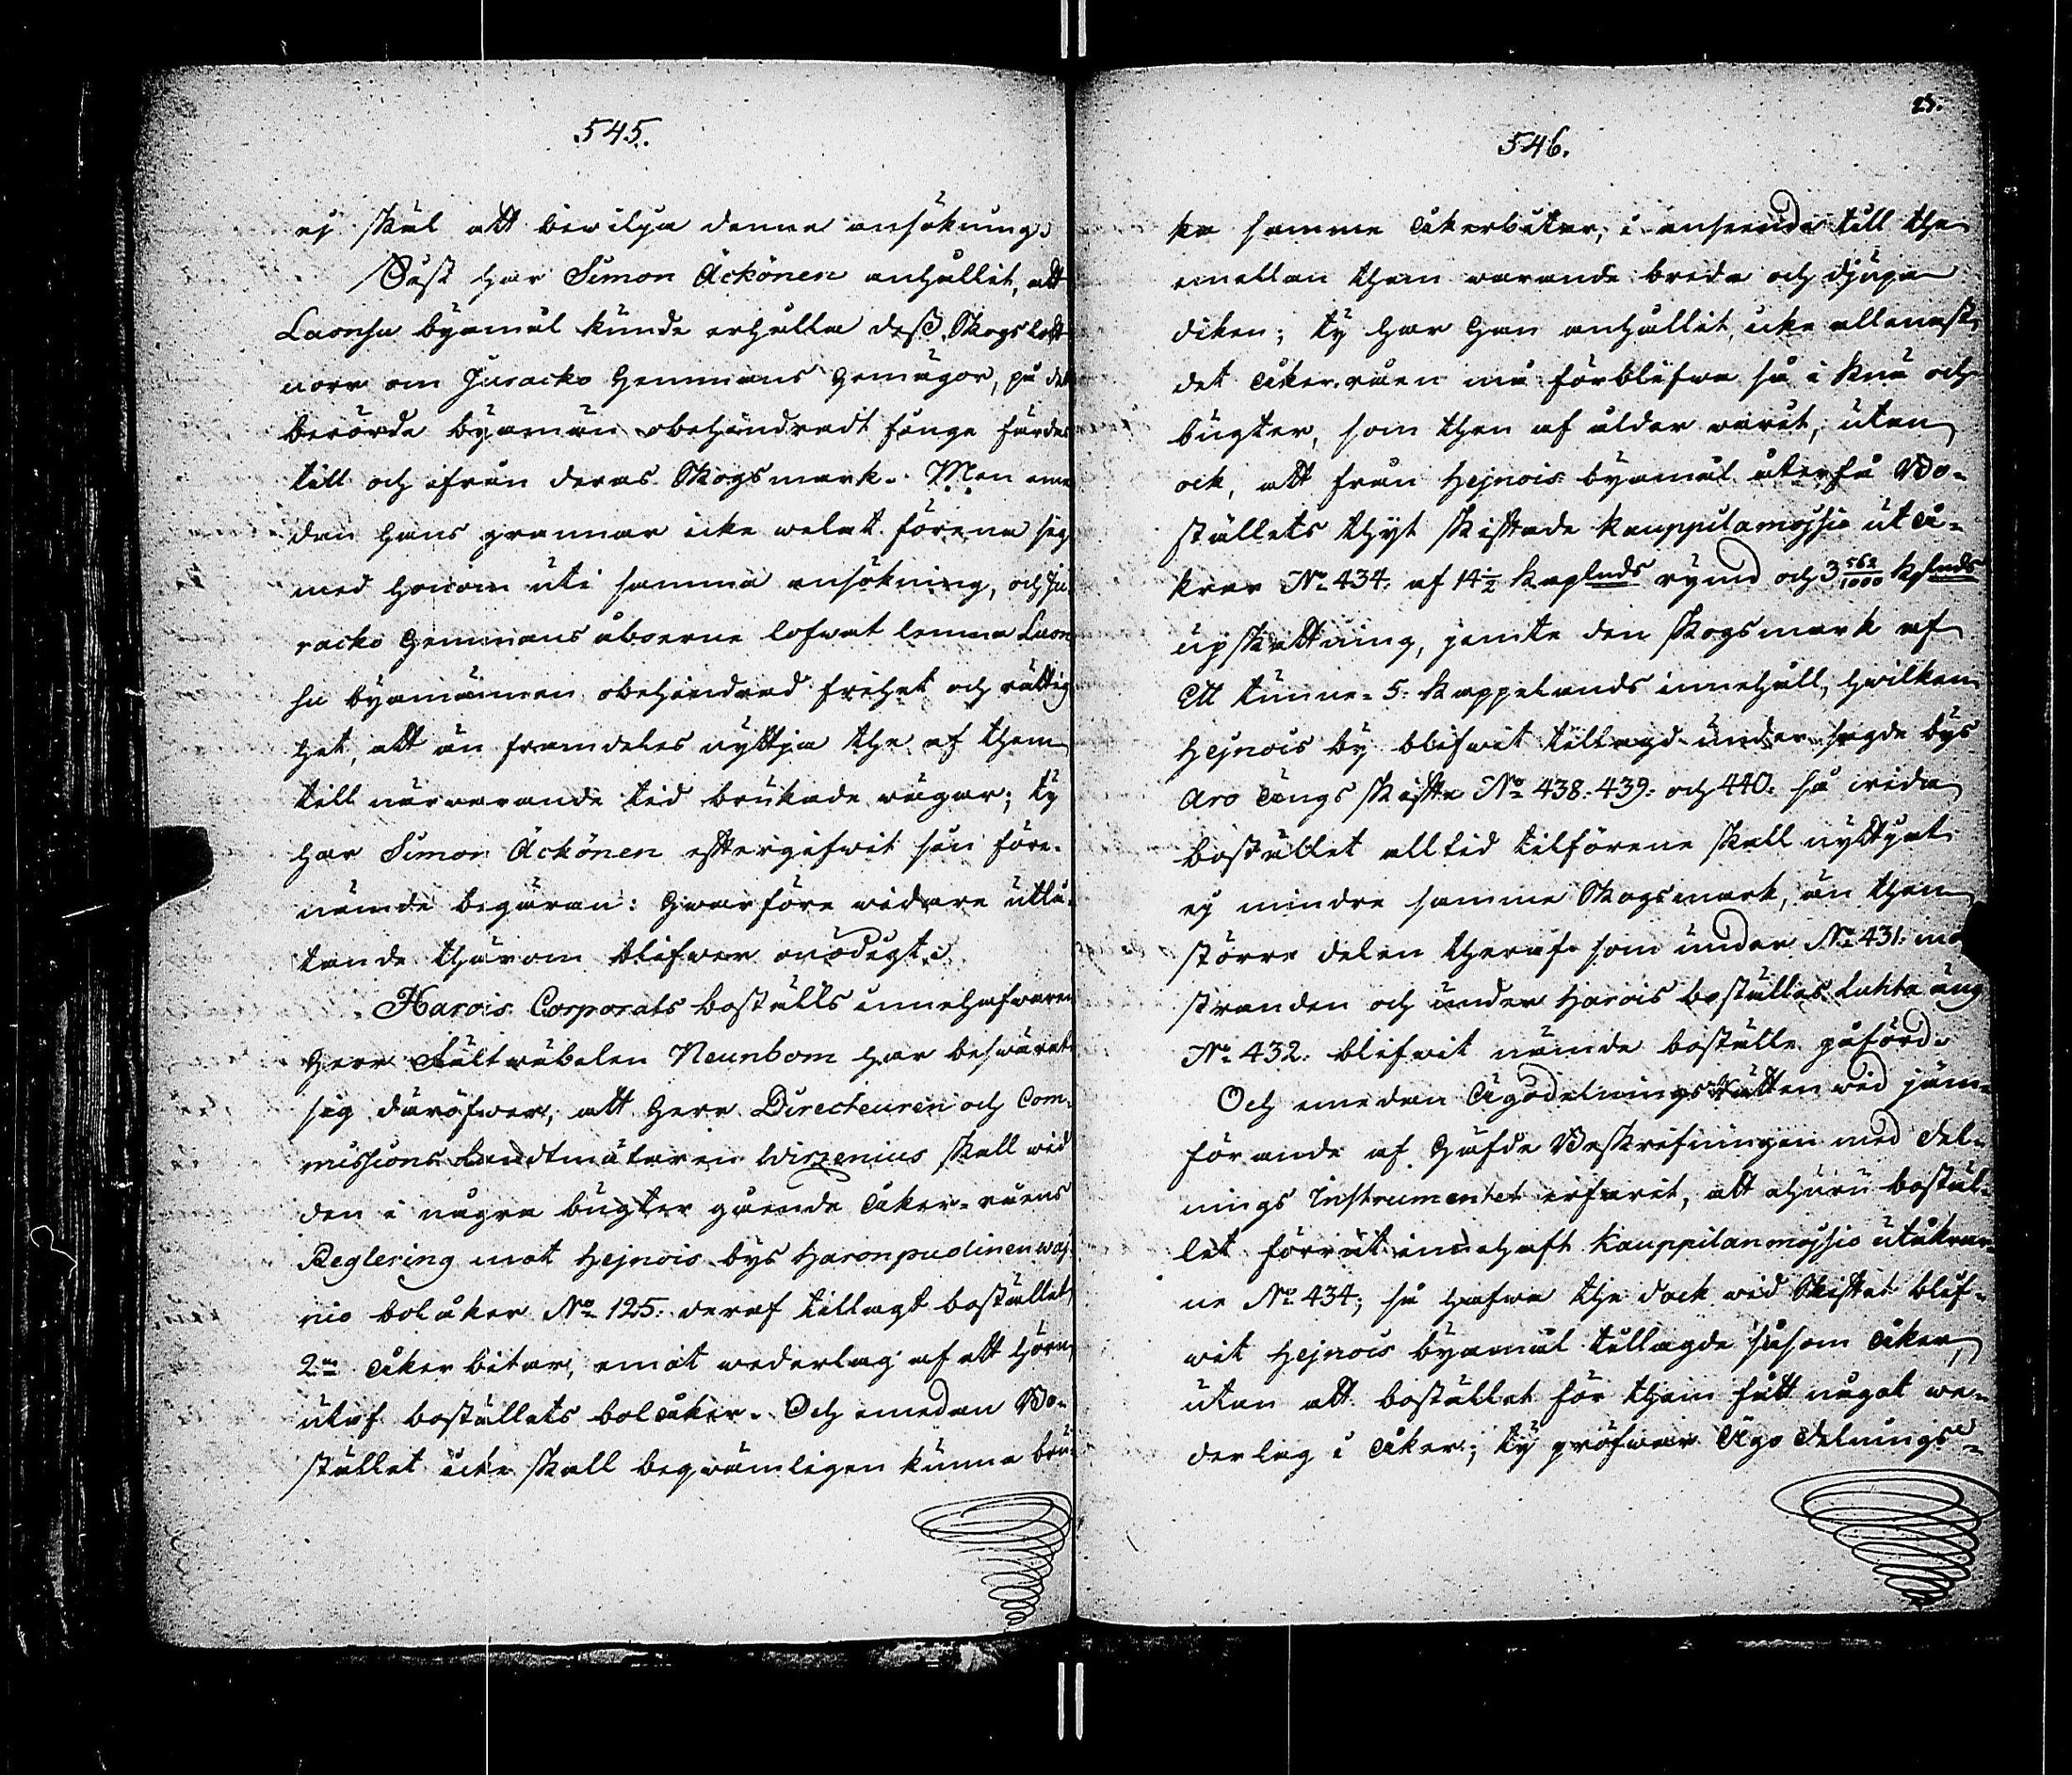 545.
ej skäl att bewilja denne ansökning.
Sidst har Simon Ackönen anhållit, att
Laonsu byamål kunde erhålla dess Skogslott
norr om Juracko hemmans hemägor, på det
berörde byamän obehindradt finge färdas
till och ifrån deras Skogsmark. Men eme¬
dan hans grannar icke welat förena sig
med honom uti samma ansökning, och Ju¬
racko hemmans åboerne lofwat lemna Laon¬
su byamännen obehindrad frihet och rättig¬
het, att än framdeles nyttja the af them
till närwarande tid brukade wägar; ty
har Simon Ackönen eftergifwit sin före¬
nämde begäran: hwarföre widare utlå¬
tande thärom blifwer onödigt.
Harois Corporals boställs innehafwaren
Herr Fältwäbelen Neunbom har beswärat
sig däröfwer, att Herr Directeuren och Com¬
missions Landtmätaren Wirzenius skall wid
den i några bugter gående åker-råens
Reglering mot Hejnois bys Haronpudinen waj¬
nio bolåker No 125. deraf tillagt bostället
2ne åkerbitar, emot wederlag af ett hörn
utaf boställets bolåker. Och emedan Bo¬
stället icke skall beqwämligen kunna bru¬
25.
546.
ka samme åkerbitar, i anseende till the
emellan them warande breda och djupa
diken; ty har han anhållit, icke allenast
det åker-råen må förblifwa så i knä och
bugter, som then af ålder warit, utan
ock, att från Hejnois byamål återfå Bo¬
ställets thyt skiftade Kauppilamojsio utå¬
krar No 434. af 14 1/2 Kaplnds rymd och 3 562/1000 Kplnds
upskattning, jemte den Skogsmark af
Ett tunne- 5. kappelands innehåll, hwilken
Hejnois by blifwit tillagd under sagde bys
Aro ängs skifte No 438. 439. och 440. så wida
bostället alltid tilförene skall nyttjat
ej mindre samme Skogsmark, än then
större delen theraf som under No 431. mo
stranden och under Harois boställes Luhta äng
No 432. blifwit nämde boställe påförd.
Och emedan Ägodelnings Rätten wid jäm¬
förande af Häfde Beskrifningen med Del¬
nings Instrumentet erfarit, att ehuru bostäl¬
let förrut innehaft Kauppilanmojsio utåkrar¬
ne No 434; så hafwa the dock wid Skiftet blif¬
wit Hejnois byamål tillagde såsom åker,
utan att bostället för them fått något we¬
derlag i åker; ty pröfwar Ägo Delnings¬